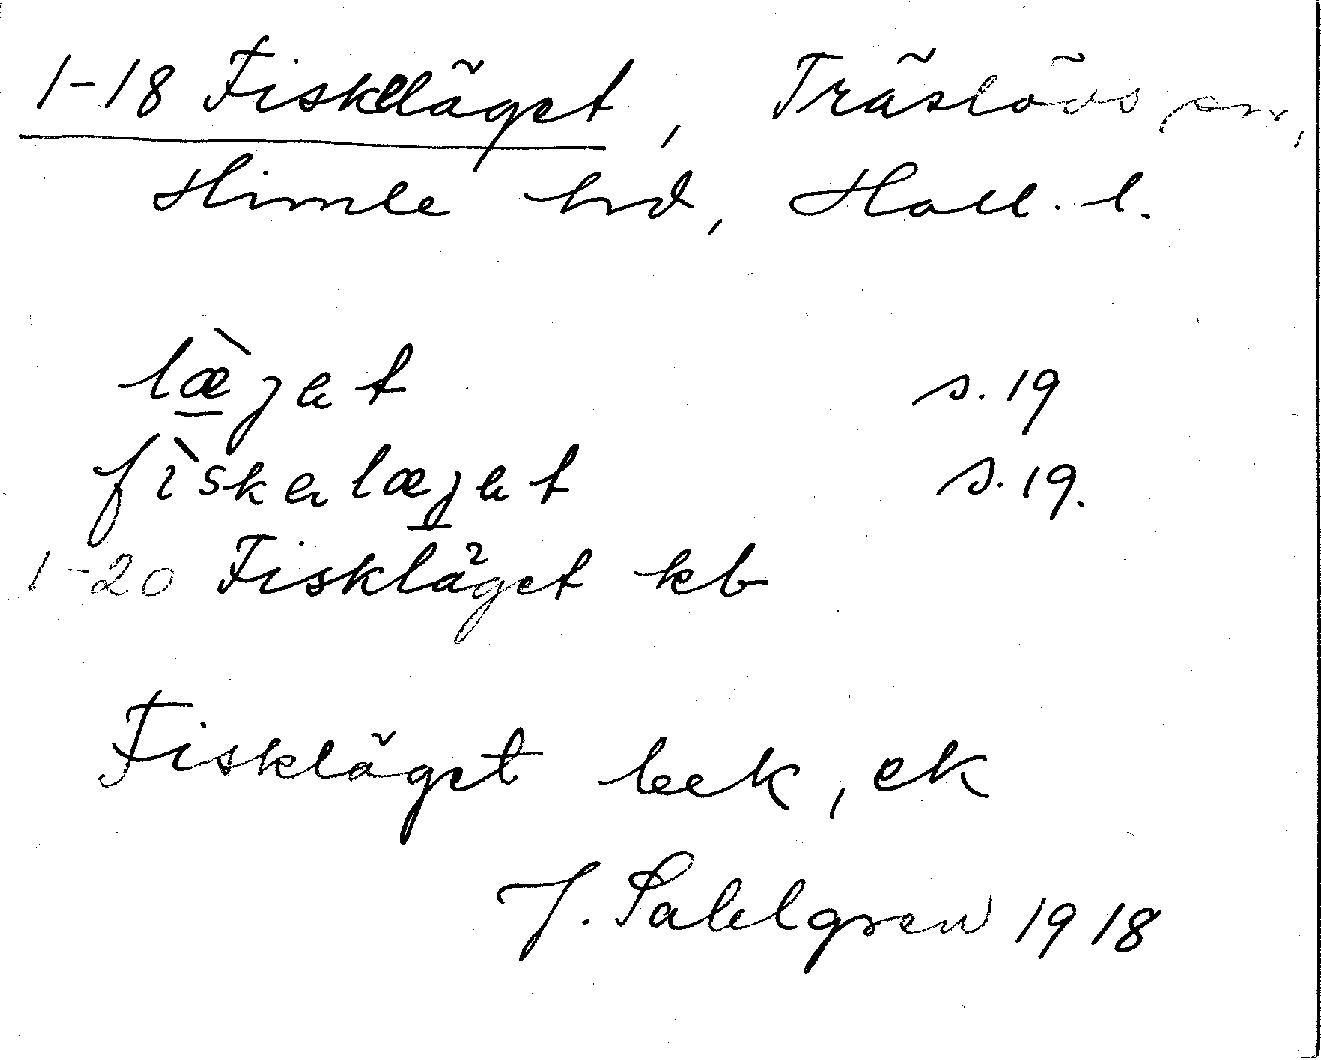 1-18 Fiskeläget, Träslövs sn,
Himle hd, Hall. l.
læ̀jet s. 19
fìskelæjet s. 19.
1-20 Fiskläget kb
Fiskläget bek, ek
J. Sahlgren 1918